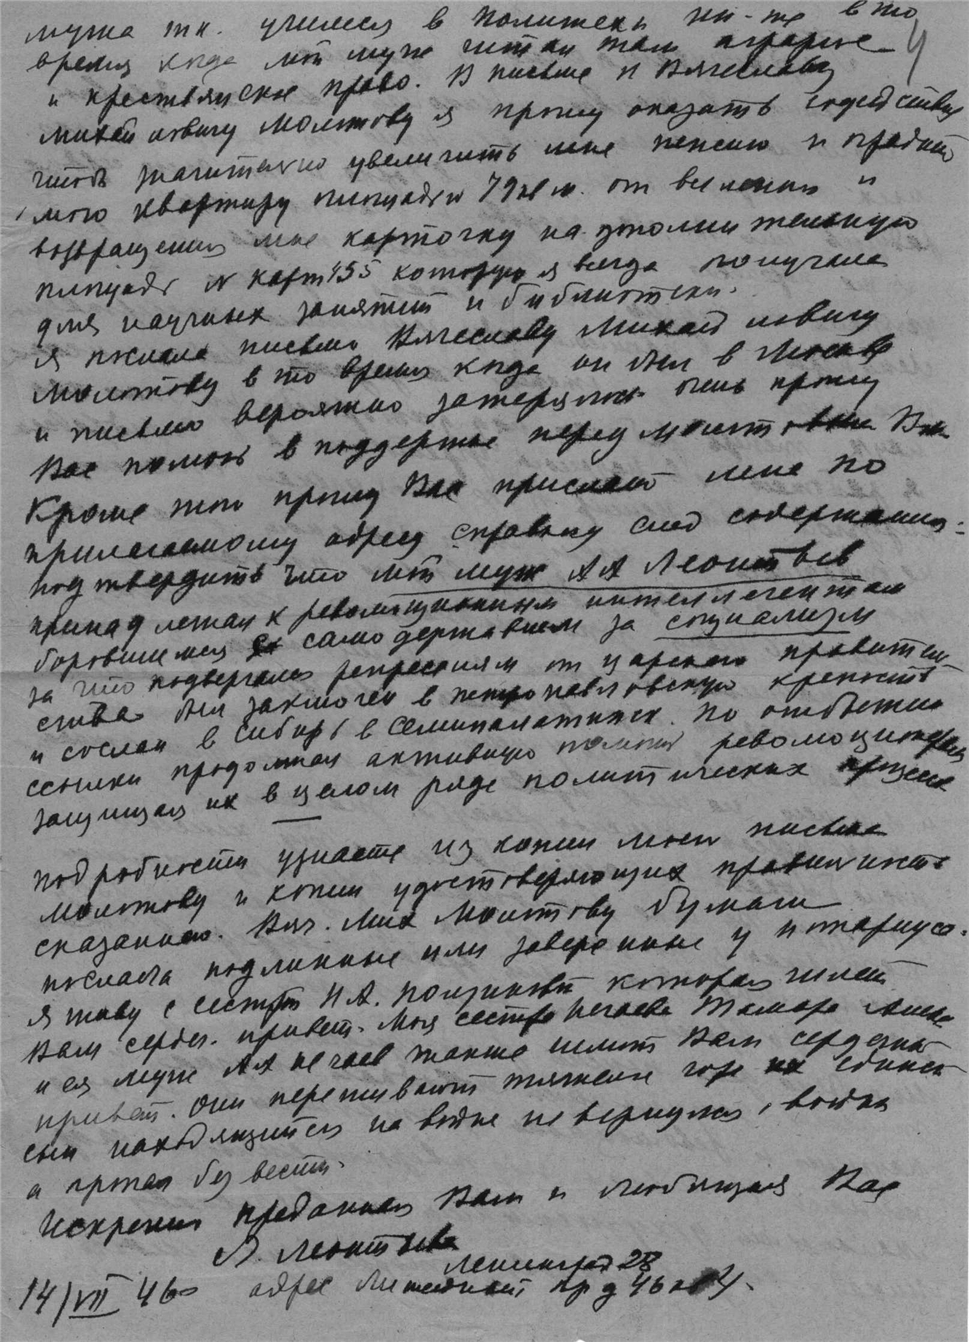 мужа т.к. учился в Политехн ин-те в то
4
время когда мой муж читал там аграрное
и крестьянское право. В письме к Вячеславу
Михайловичу Молотову я прошу оказать содействие
чтоб значительно увеличить мне пенсию и оградить
мою квартиру площадью 79 кв м. от вселения и
возвращения мне карточку на дополнительную
площадь N карт 455 которую я всегда получала
для научных занятий и библиотеки.
Я послала письмо Вячеславу Михайловичу
Молотову в то время когда он был в
и письмо вероятно затерялось очень прошу
Вас помочь в поддержке перед Молотовым
Кроме того прошу Вас прислать мне по
прилагаемому адресу справку след содержания:
подтвердить что мой муж А А Леонтьев
принадлежал к революционным интеллегентам
боровшимся с самодержавием за социализм
за что подвергался репрессиям от царского правитель
ства был заключен в петропавловскую крепость
и сослан в Сибирь в Семипалатинск. По отбытию
ссылки продолжал активную помощь революционерам
защищая их в целом ряде политических процессов
Подробности узнаете из копии моего письма
Молотову и копии удостоверяющих правильность
сказанного. Вяч. Мих Молотову бумаги
послала подлинные или заверенные у нотариуса.
Я живу с сестрой Н.А. которая шлет
Вам сердеч. привет. Моя сестра Нечаева Тамара
и ея муж А А Нечаев также шлют Вам сердечный
привет. Они переживают тяжелое горе их единст
сын находящийся на войне не вернулся с войны
а пропал без вести.
Искренно преданная Вам и любящая Вас
Л. Леонтьева
Ленинград 28
14/VII 46 адрес Литейный пр д 46 к 4.